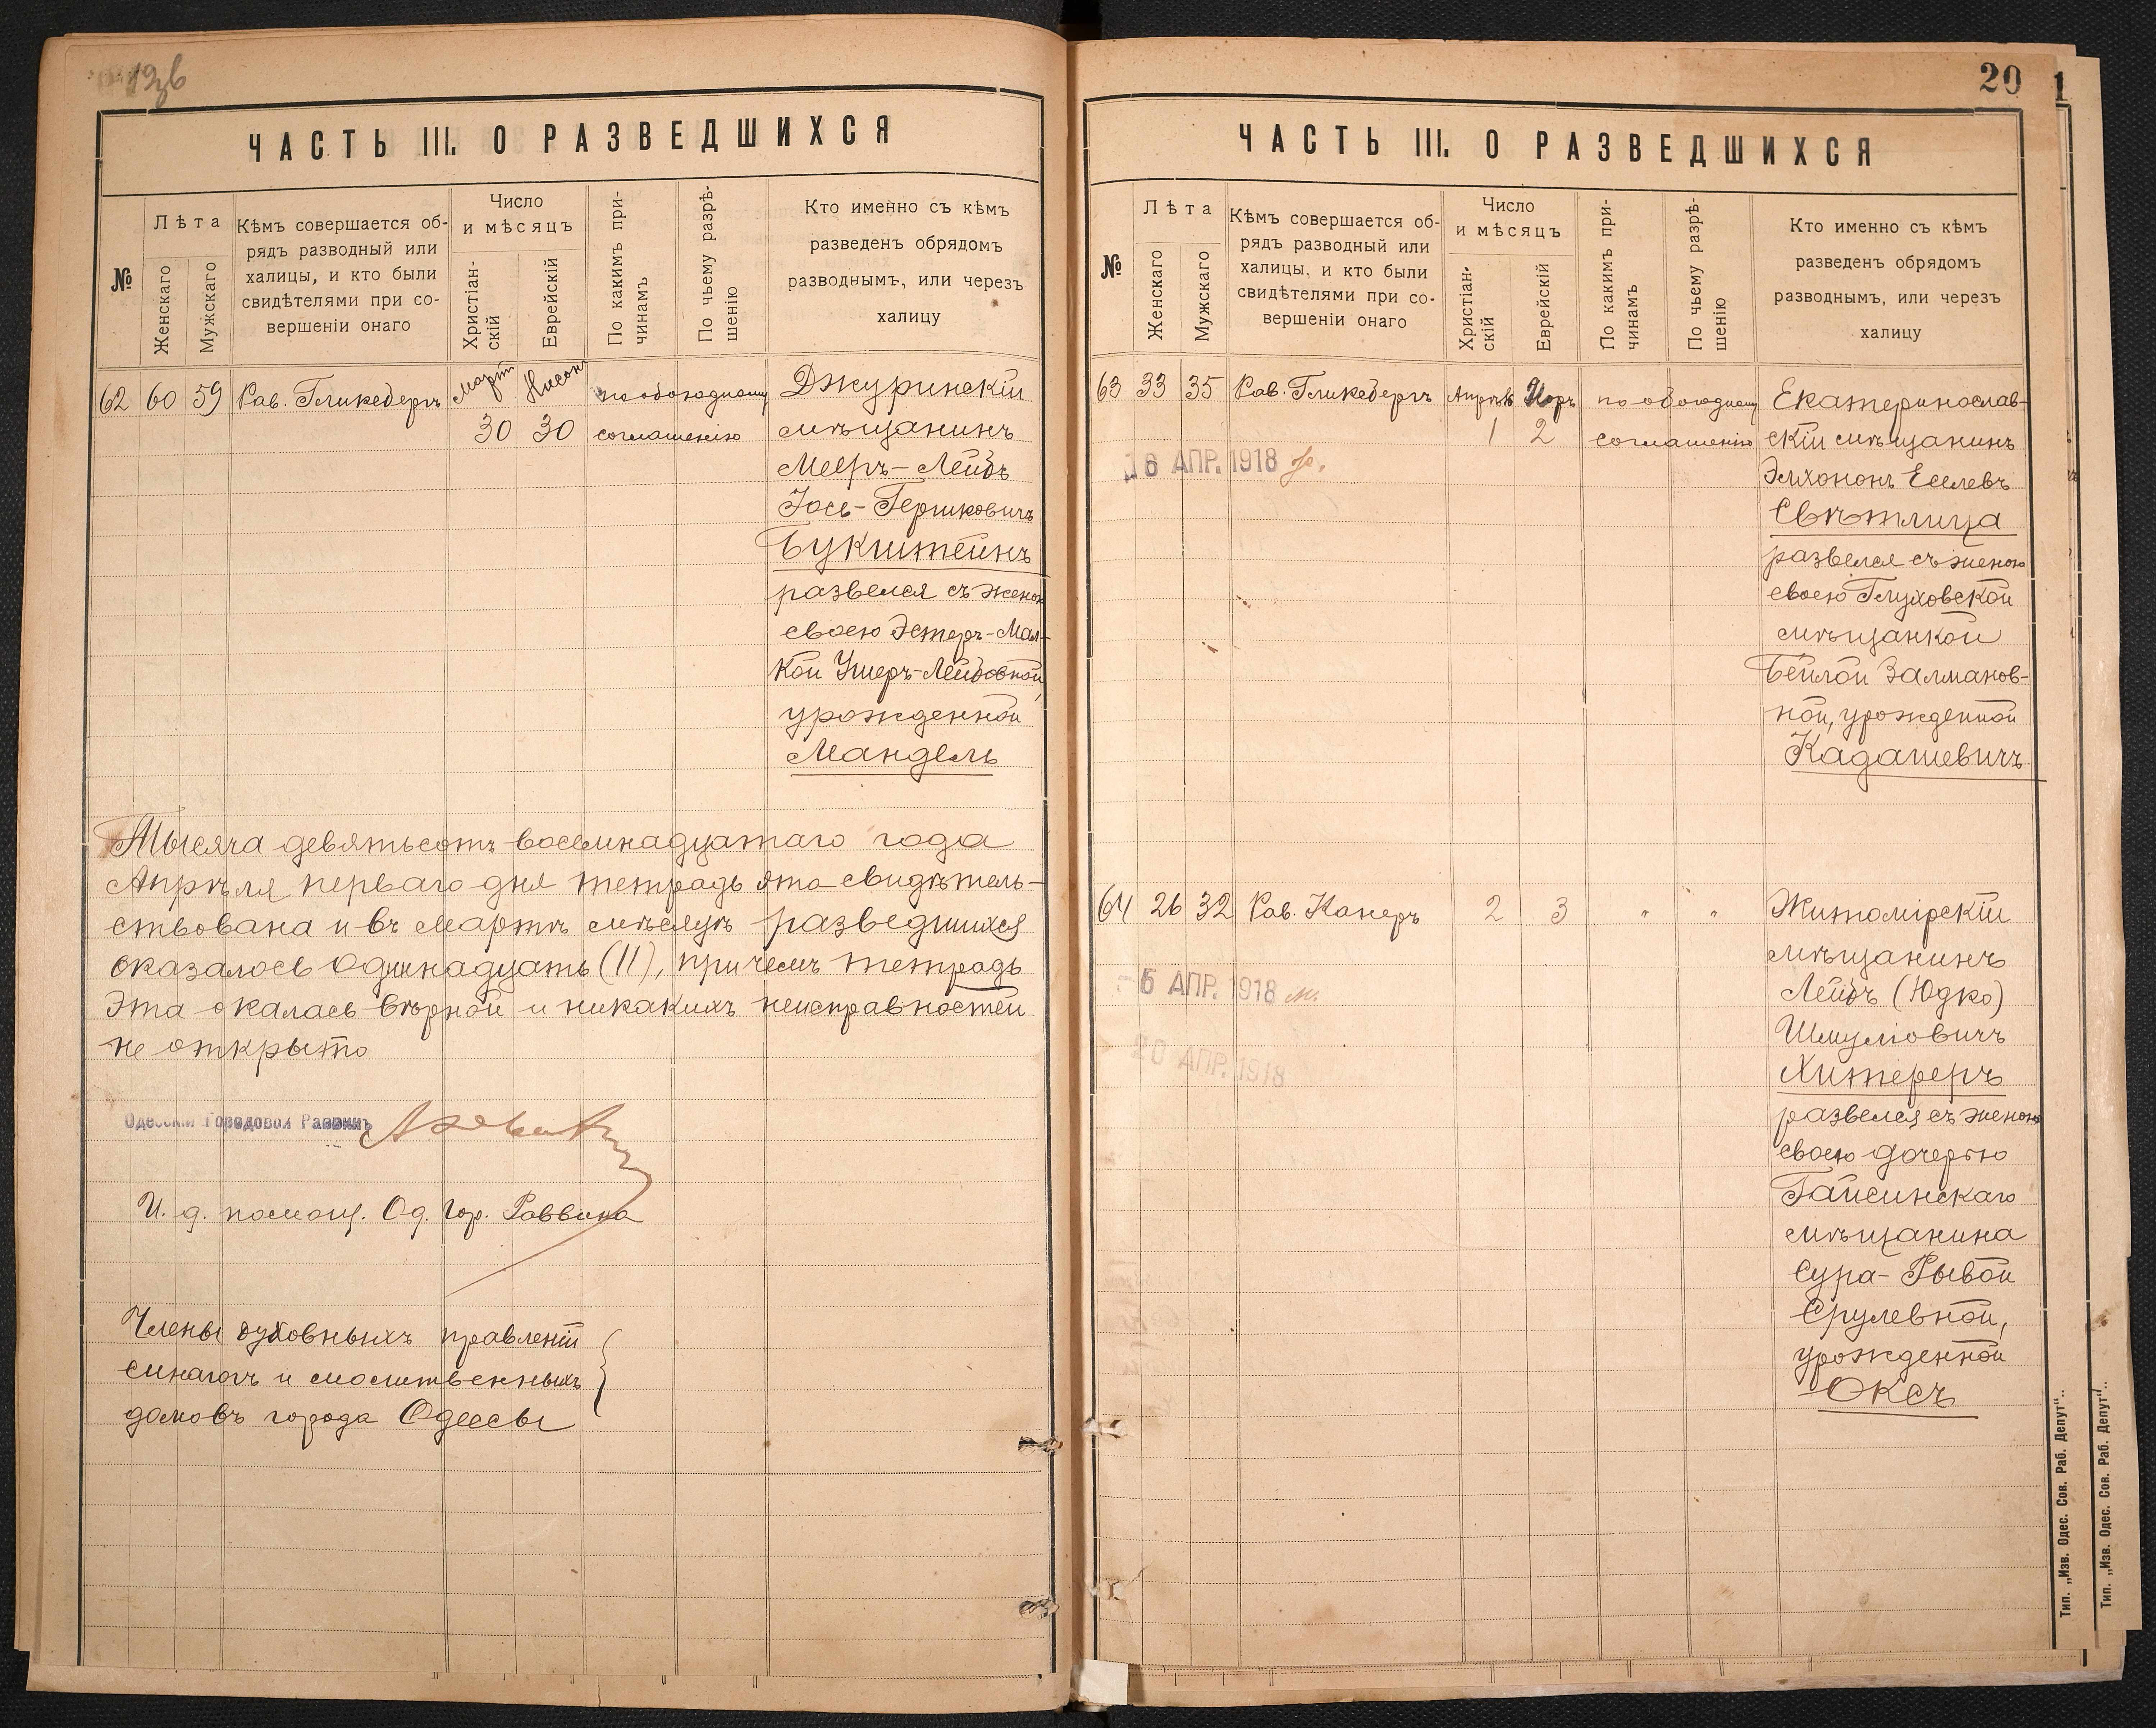 ЧАСТЬ III. О РАЗВЕДШИХСЯ
№
Лѣта
Женскаго
Мужскаго
Кѣмъ совершается об-
рядъ разводный или
халицы, и кто были
свидѣтелями при со-
вершеніи онаго
Число
и мѣсяцъ
Христіан-
скій
Еврейскій
По какимъ при-
чинамъ
По чьему разрѣ-
шенію
Кто именно съ кѣмъ
разведенъ обрядомъ
разводнымъ, или через
халицу
62 60 59 Рав. Гликсбергъ Мартъ Нисонъ по обоюдному
30 30 соглашенію
Джуринскій
мѣщанинъ
Мееръ-Лейбъ
Іось-Гершковичъ
Букштейнъ
развелся съ женою
своею Эстеръ-Мал-
кой Ушеръ-Лейбовной,
урожденной
Мандель
Тысяча девятьсотъ восемнадцатаго года
Апрѣля перваго дня тетрадь эта свидѣтель-
ствована и въ Мартѣ мѣсяцѣ разведшихся
оказалось одиннадцать (11), причемъ тетрадь
эта окалась вѣрной и никакихъ неисправностей
не открыто
Одесскій Городовой Раввинъ
И. д. помощ. Од. Гор. Раввина
Члены духовныхъ правленій
синагогъ и молитвенныхъ
домовъ города Одессы
20
ЧАСТЬ III. О РАЗВЕДШИХСЯ
№
Лѣта
Женскаго
Мужскаго
Кѣмъ совершается об-
рядъ разводный или
халицы, и кто были
свидѣтелями при со-
вершеніи онаго
Число
и мѣсяцъ
Христіан-
скій
Еврейскій
По какимъ при-
чинамъ
По чьему разрѣ-
шенію
Кто именно съ кѣмъ
разведенъ обрядомъ
разводнымъ, или черезъ
халицу
63 33 35 Рав. Гликсбергъ Апрѣль Іоръ по обоюдному
1 2 соглашенію
16 АПР. 1918
Екатеринослав-
скій мѣщанинъ
Элхононъ Еселевъ
Свѣтлица
развелся съ женою
своею Глуховской
мѣщанкой
Бейлой Залманов-
ной, урожденной
Кадашевичъ
64 26 32 Рав. Канеръ 2 3 " "
-5 АПР. 1918
20 АПР. 1918
Житомірскій
мѣщанинъ
Лейбъ (Юдко)
Шмуліовичъ
Хитереръ
развелся съ женою
своею дочерью
Гайсинскаго
мѣщанина
Сура-Рывой
Срулевной,
урожденной
Оксъ
Тип. „Изв. Одес. Сов. Раб. Депут"..
Тип. „Изв. Одес. Сов. Раб. Депут"..